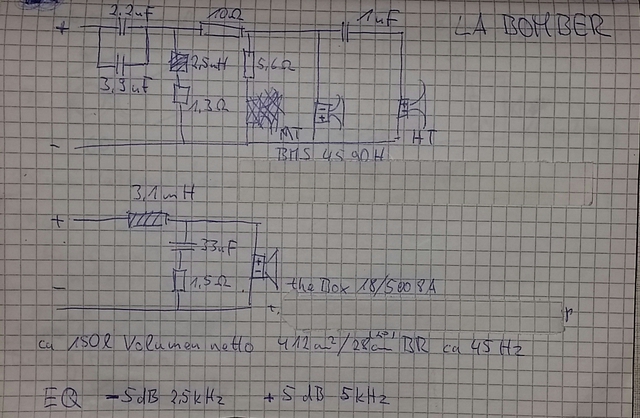 LA BOMBER
+ 2,2uF 10Ω 1uF
3,9uF 2,5mH 5,6Ω
1,3Ω
MT HT
-
BMS 4590H
3,1mH
+
33uF
1,5Ω
- the Box 18/500 8A
ca 150l Volumen netto 412cm²/28cm BR ca 45Hz
EQ -5dB 2,5kHz +5dB 5kHz